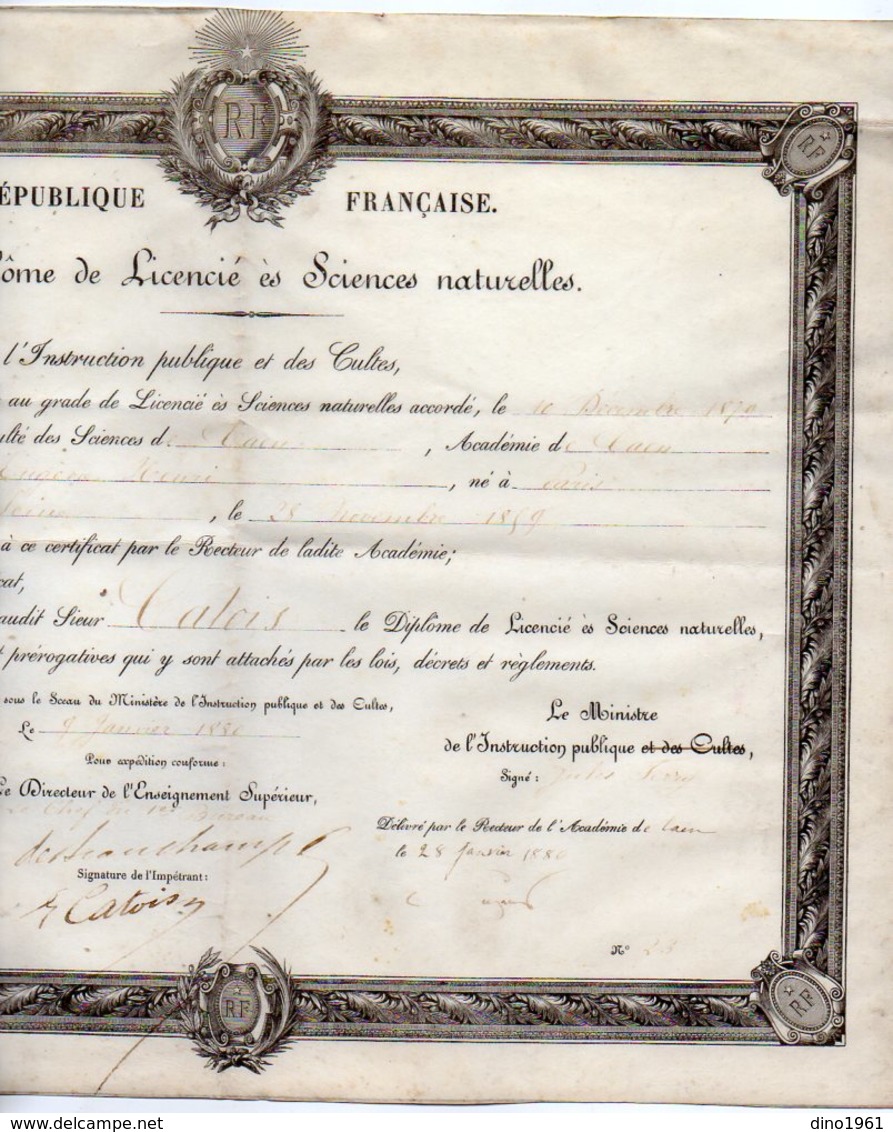 RF
RF
ÉPUBLIQUE FRANÇAISE.
lôme de Licencié ès Sciences naturelles.
l'Instruction publique et des Cultes,
au grade de Licencié ès Sciences naturelles accordé, le 10 Décembre
ulté des Sciences de Caen, Académie de Caen
Henri, né à Paris
Seine, le 28 Novembre 1859
à ce certificat par le Recteur de ladite Académie;
cat,
audit Sieur Catois le Diplôme de Licencié ès Sciences naturelles,
t prérogatives qui y sont attachés par les lois, décrets et règlements.
sous le Sceau du Ministère de l'Instruction publique et des Cultes,
Le 9 Janvier 1880
Pour expédition conforme:
Le Directeur de l'Enseignement Supérieur,
Le Chef du 1er Bureau
de Beauchamp
Signature de l'Impétrant:
E Catois
Le Ministre
de l'Instruction publique et des Cultes,
Signé: Jules Ferry
Délivré par le Recteur de l'Académie de Caen
le 28 Janvier 1880
N°
RF
RF
dino1961